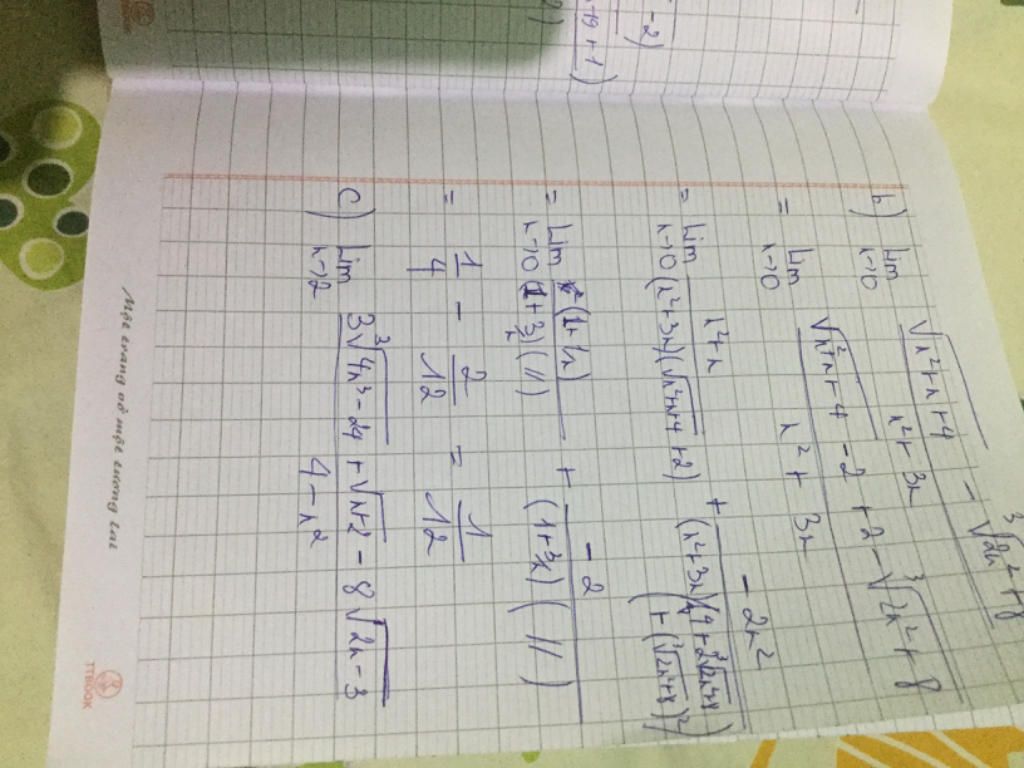 b) Lim x→0 (√(x²+x+4) − ³√(2x²+8)) / (x²+3x)
= Lim x→0 (√(x²+x+4) − 2 + 2 − ³√(2x²+8)) / (x²+3x)
= Lim x→0 (x²+x) / ((x²+3x)(√(x²+x+4) + 2)) + (−2x²) / ((x²+3x)(4 + 2³√(2x²+8) + (³√(2x²+8))²))
= Lim x→0 (1+1/x) / ((1+3/x)(〃)) + (−2) / ((1+3/x)(〃))
= 1/4 − 2/12 = 1/12
c) Lim x→2 (3 ³√(4x³−24) + √(x+2) − 8√(2x−3)) / (4−x²)
TTBOOK
−2)
+1)
2)